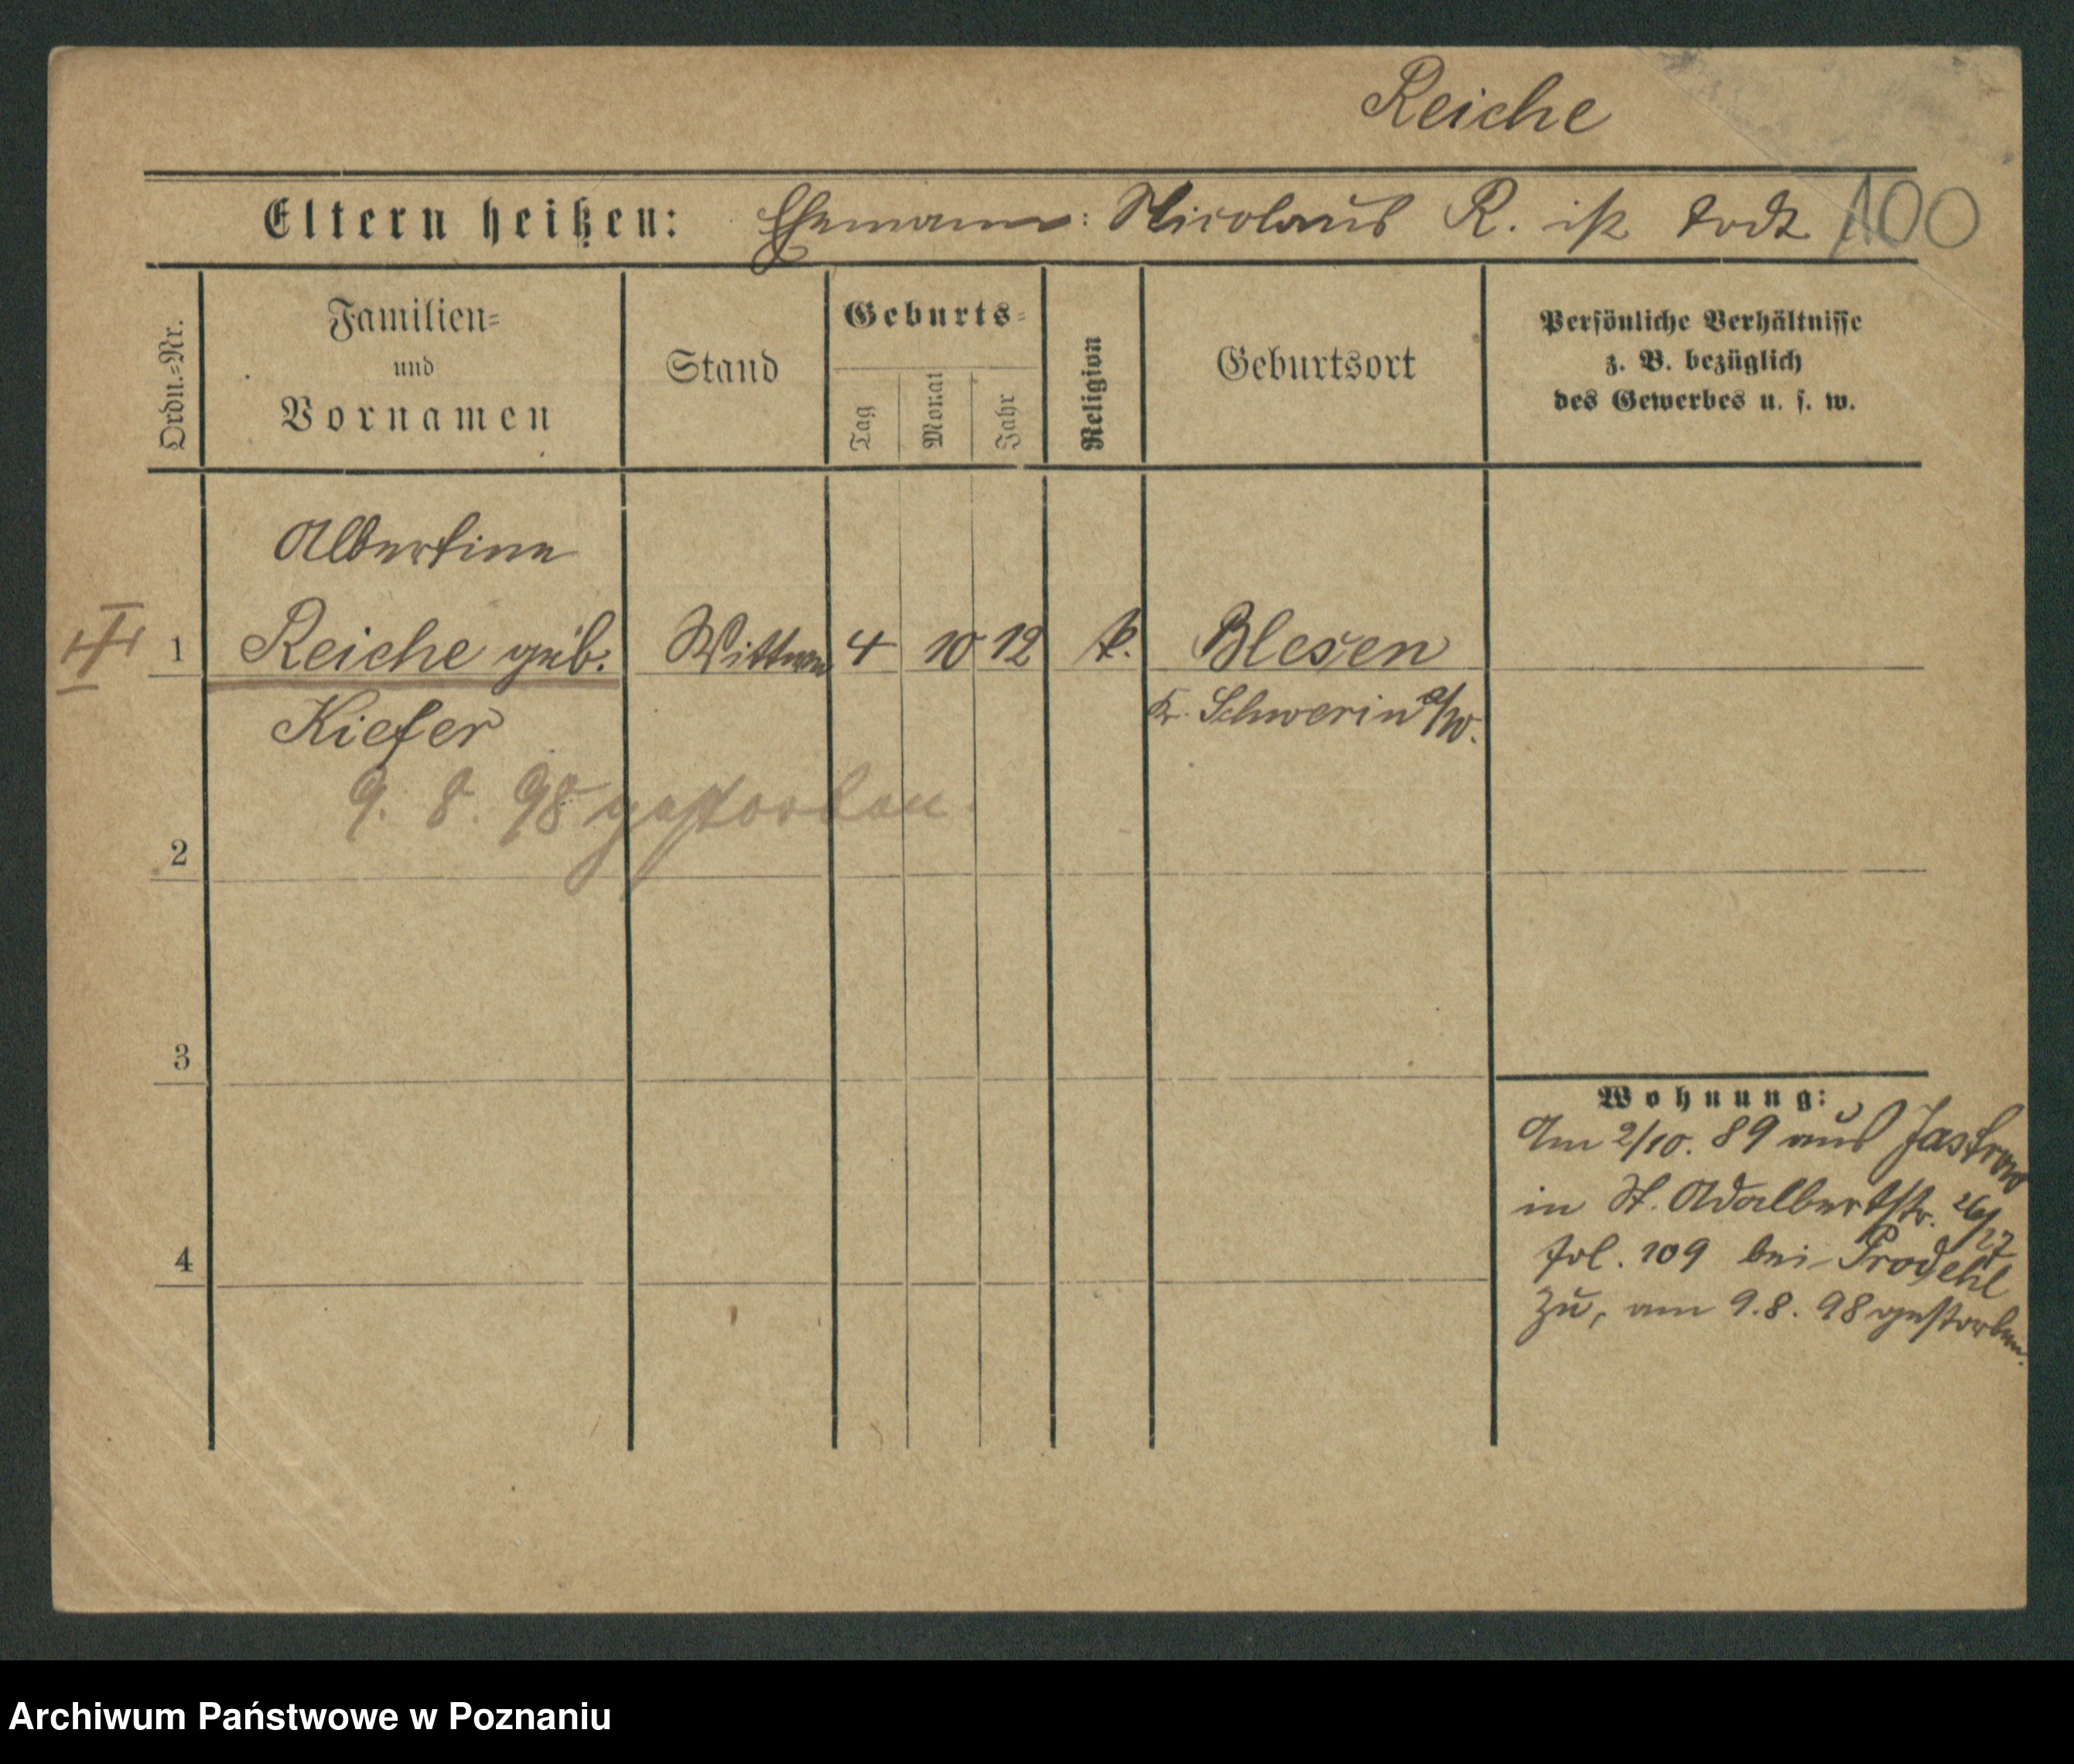 Reiche
Eltern heißen: Ehemann: Nicolaus R. ist todt 100
Ordn.-Nr.
Familien-
und
Vornamen
Stand
Geburts-
Tag
Monat
Jahr
Religion
Geburtsort
Persönliche Verhältnisse
z. B. bezüglich
des Gewerbes u. s. w.
Albertine
1 Reiche geb. Wittwe 4 10 12 k. Blesen
Kiefer Kr. Schwerin a/W.
9. 8. 98 gestorben
2
3
4
Wohnung:
Am 2/10. 89 aus Jastrow
in St. Adalbertstr. 26/27
fol. 109 bei Prodehl
zu, am 9.8.98 gestorben.
Archiwum Państwowe w Poznaniu